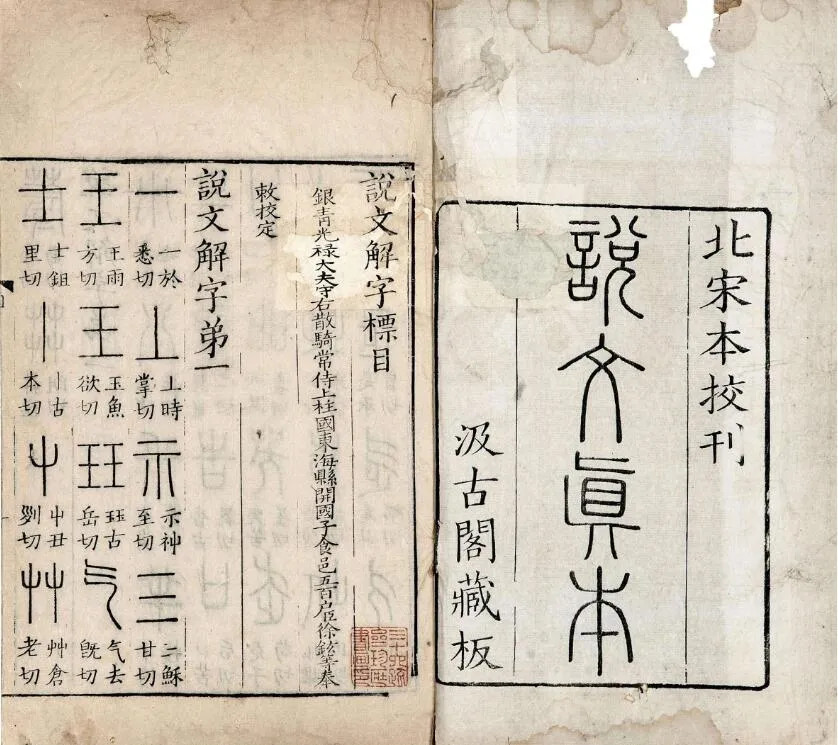 北宋本挍刊
說文眞本
汲古閣藏板
說文解字標目
銀青光禄大夫守右散騎常侍上柱國東海縣開國子食邑五百户臣徐鉉等奉
敕挍定
說文解字弟一
一 一於悉切 丄 上時掌切 示 示神至切 三 三穌甘切
王 王雨方切 王 玉魚欲切 玨 玨古岳切 气 气去旣切
士 士鉏里切 丨 丨古本切 屮 屮丑列切 艸 艸倉老切